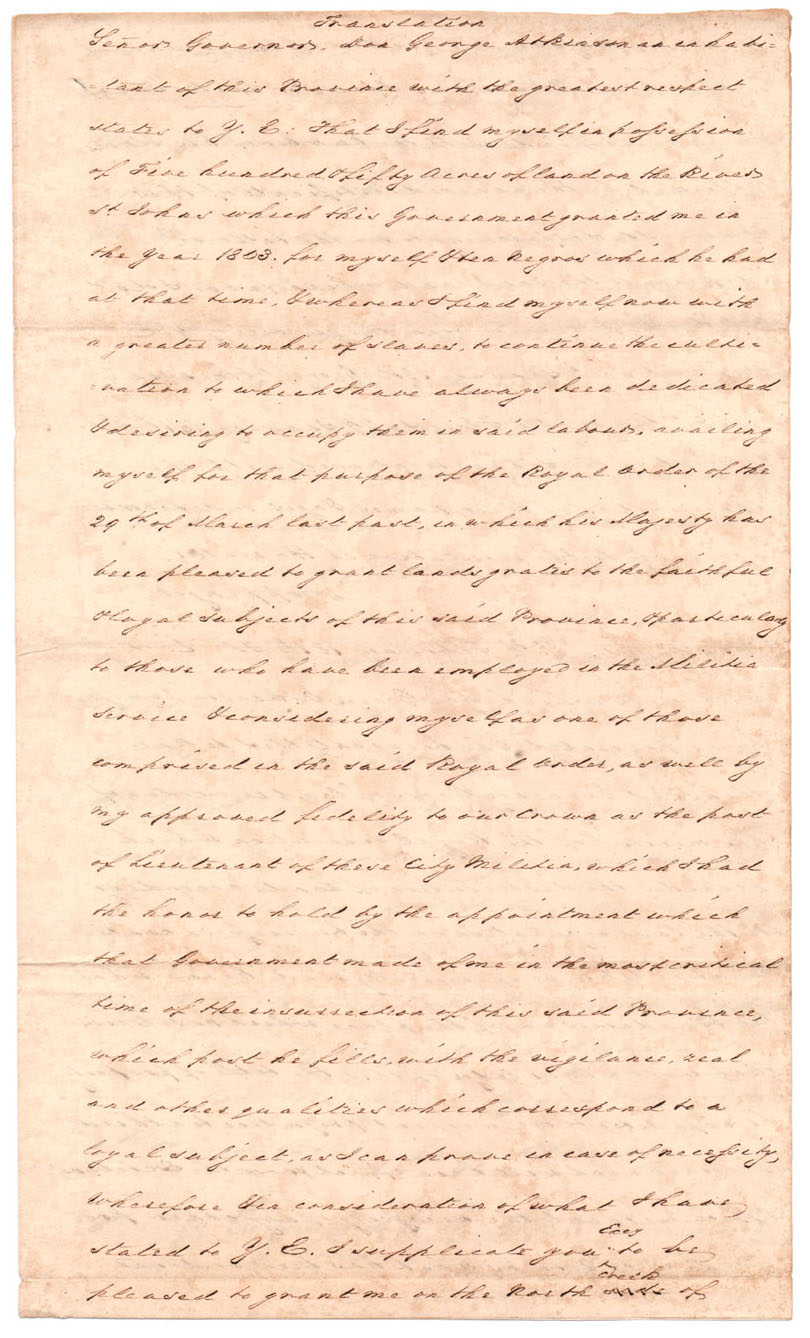 Translation
Señor Governor. Don George Atkinson an inhabi=
=tant of this Province with the greatest respect
states to Y. E: That I find myself in possession
of Five hundred & fifty Acres of land on the River
St Johns which this Government granted me in
the Year 1803. for myself & ten Negros which he had
at that time, & whereas I find myself now with
a greater number of slaves, to continue the culti=
=vation to which I have always been dedicated
& desiring to occupy them in said labour, availing
myself for that purpose of the Royal Order of the
29th of March last past, in which his Majesty has
been pleased to grant lands gratis to the faithful
& loyal subjects of this said Province, & particularly
to those who have been employed in the Militia
service & considering myself as one of those
comprised in the said Royal Order, as well by
my approved fidelity to our Crown as the post
of Lieutenant of these City Militia, which I had
the honor to hold by the appointment which
that Government made of me in the most critical
time of the insurrection of this said Province,
which post he fills, with the vigilance, zeal
and other qualities which correspond to a
loyal subject, as I can prove in case of necessity,
Wherefore & in consideration of what I have
stated to Y. E. I supplicate your Excy to be
pleased to grant me on the North creek of